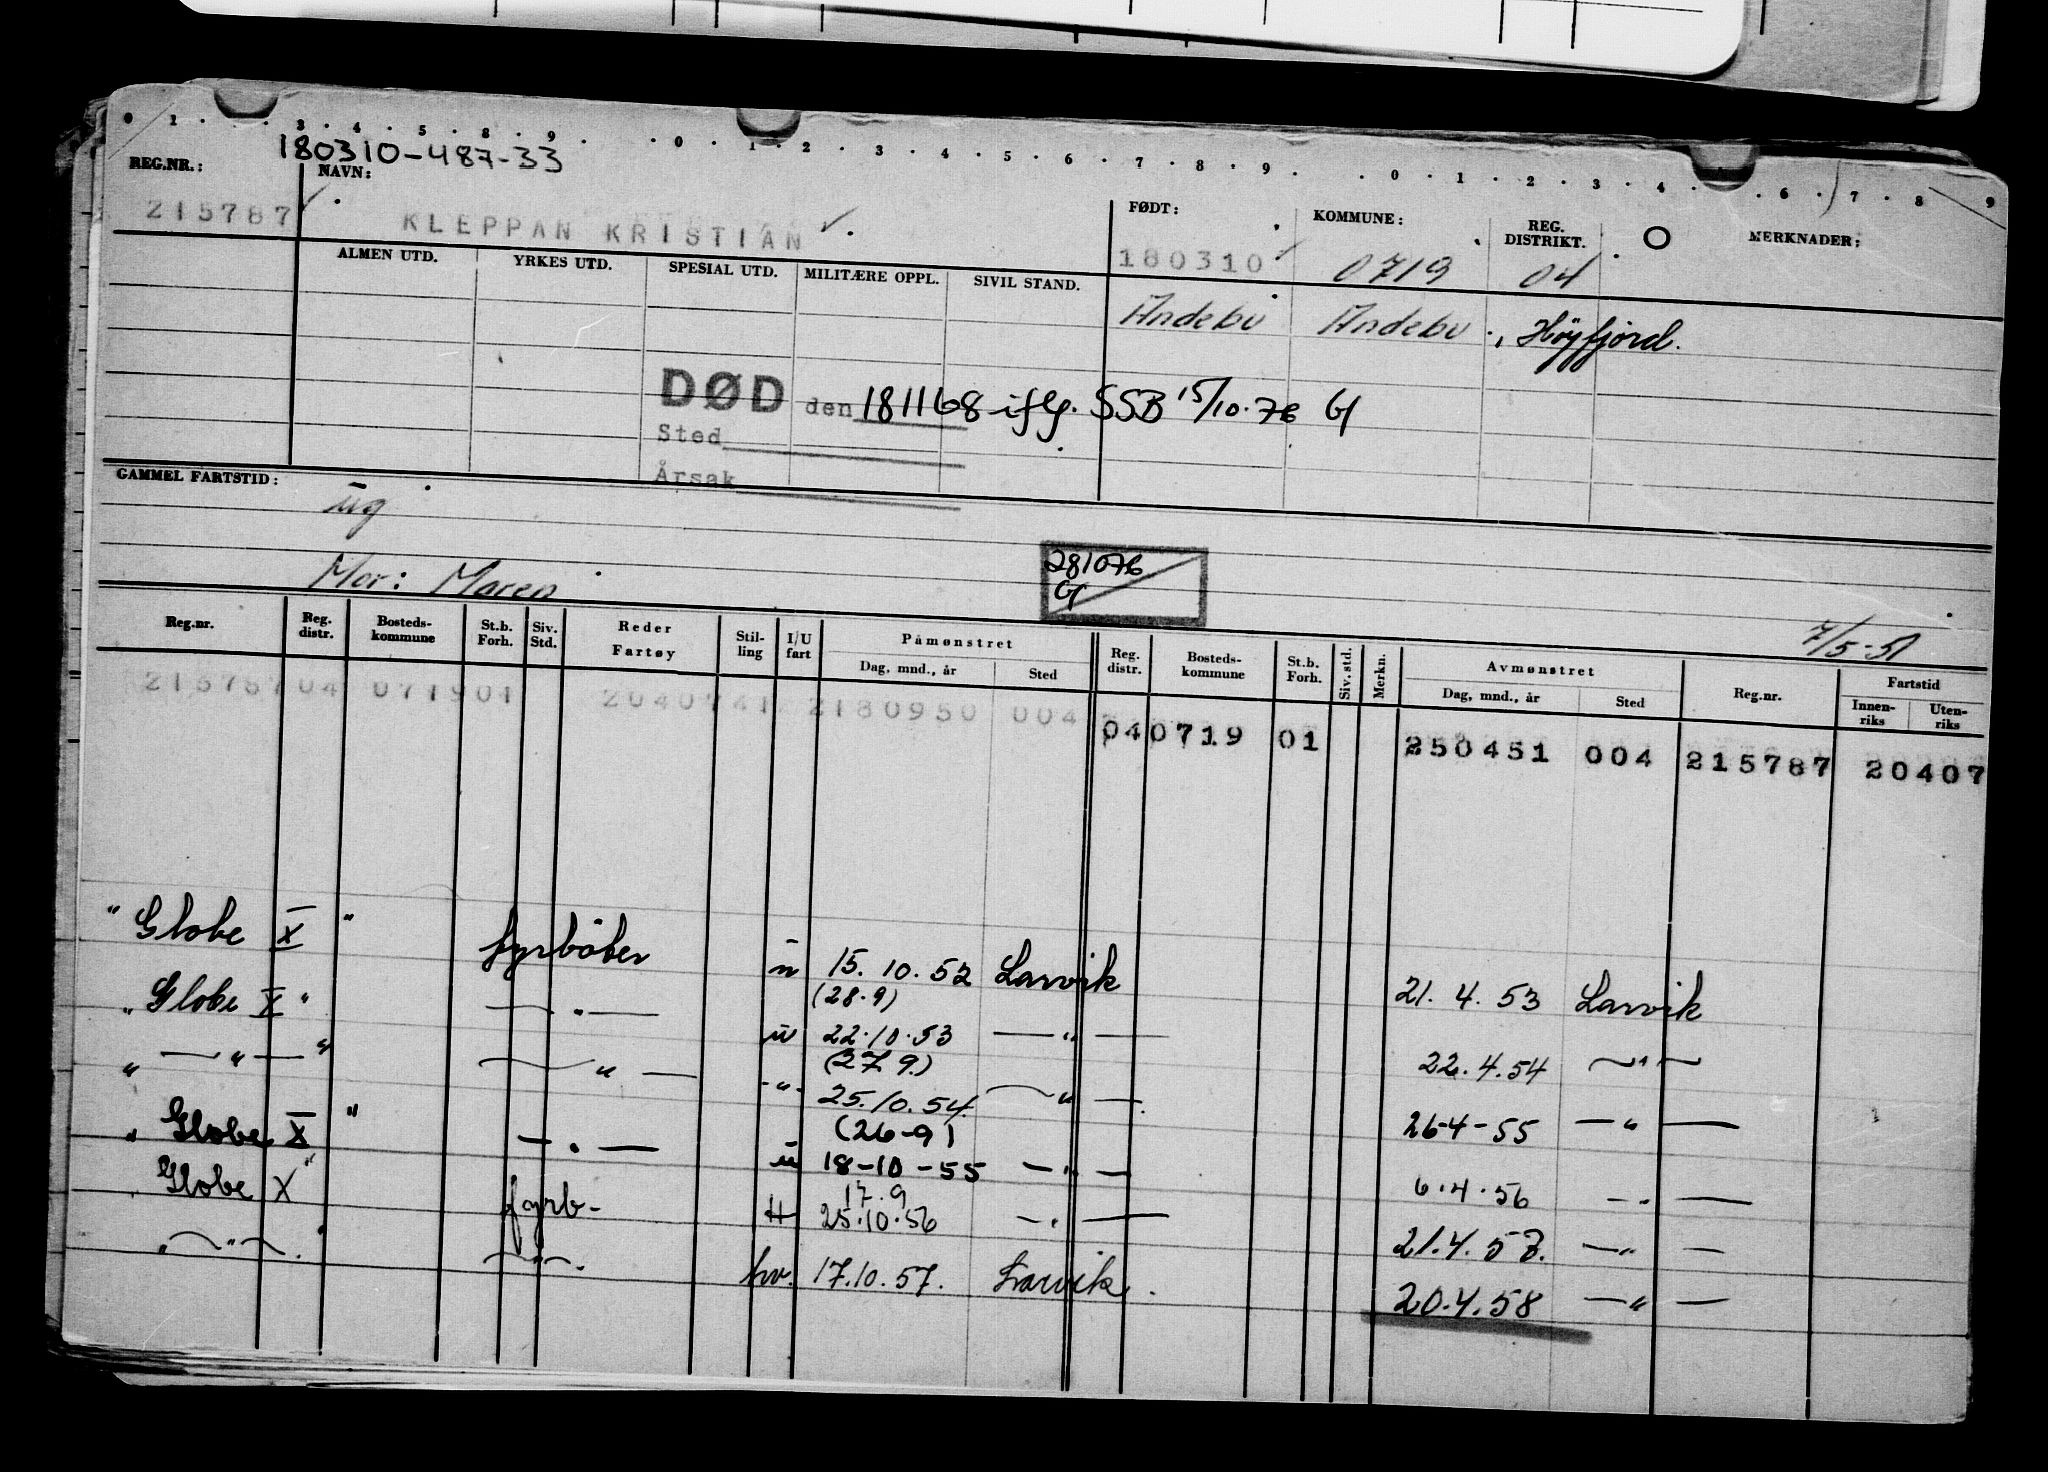 0 1 . . 3 . 4 . 5 . 8 . 9 . . 0 . 1 . 2 . 3 . 4 . 5 . 6 . 7 . 8 . 9 . . 0 . 1 . 2 . 3 . 4 . . 6 . 7 . 8 . 9
180310-487-33
REG.NR.: NAVN: FØDT: KOMMUNE: REG. DISTRIKT. O MERKNADER:
215787 KLEPPAN KRISTIAN 180310 0719 04
ALMEN UTD. YRKES UTD. SPESIAL UTD. MILITÆRE OPPL. SIVIL STAND.
Andebu Andebu Höyjord.
DØD den 181168 iflg. SSB 15/10.76 G
Sted
Årsak
GAMMEL FARTSTID: ug
281076
G
Mor: Maren
7/5-51
Reg.nr. Reg. distr. Bosteds-kommune St.b. Forh. Siv. Std. Reder Fartøy Stil-ling I/U fart Påmønstret Dag, mnd., år Sted Reg. distr. Bosteds-kommune St.b. Forh. Siv. std. Merkn. Avmønstret Dag, mnd., år Sted Reg.nr. Fartstid Innen-riks Uten-riks
215787 04 0719 01 2040741 2180950 004
04 0719 01 250451 004 215787 20407
"Globe X" fyrböter u 15.10.52 Larvik 21.4.53 Larvik
(28.9)
"Globe X" — " — u 22.10.53 — " — 22.4.54 — " —
(27.9.)
" — " — " — " — - " - 25.10.54 — " — 26-4-55 — " —
(26-9)
"Globe X" — " — u 18-10-55 — " — 6.4.56 — " —
17.9
"Globe X" fyrb- H 25.10.56 — " — 21.4.57. — " —
" — " — " — " — hv. 17.10.57. Larvik. 20.4.58 — " —